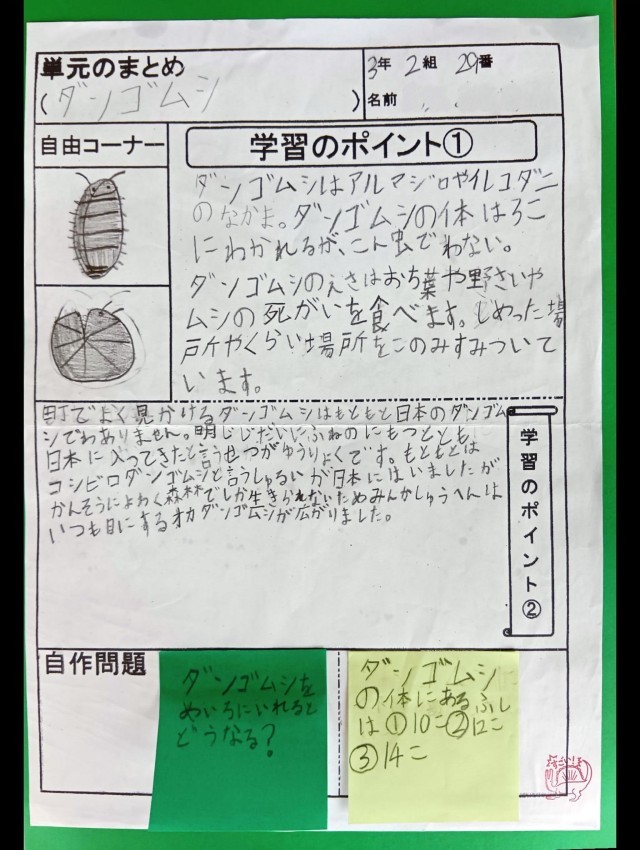 単元のまとめ
(ダンゴムシ)
3年 2組 29番
名前
自由コーナー
学習のポイント①
ダンゴムシはアルマジロやイレコダニ
のなかま。ダンゴムシの体はろこ
にわかれるが、こん虫でわない。
ダンゴムシのえさはおち葉や野さいや
ムシの死がいを食べます。じめった場
所やくらい場所をこのみすみついて
います。
町でよく見かけるダンゴムシはもともと日本のダンゴム
シでわありません。明じじだいにふねのにもつととも
日本に入ってきたと言うせつがゆうりょくです。もともとは
コシビロダンゴムシと言うしゅるいが日本にはいましたが
かんそうによわく森林でしか生きられないためみんかしゅうへんは
いつも目にするオカダンゴムシが広がりました。
学習のポイント②
自作問題
ダンゴムシを
めいろにいれると
どうなる?
ダンゴムシ
の体にあるふし
は①10こ②12こ
③14こ